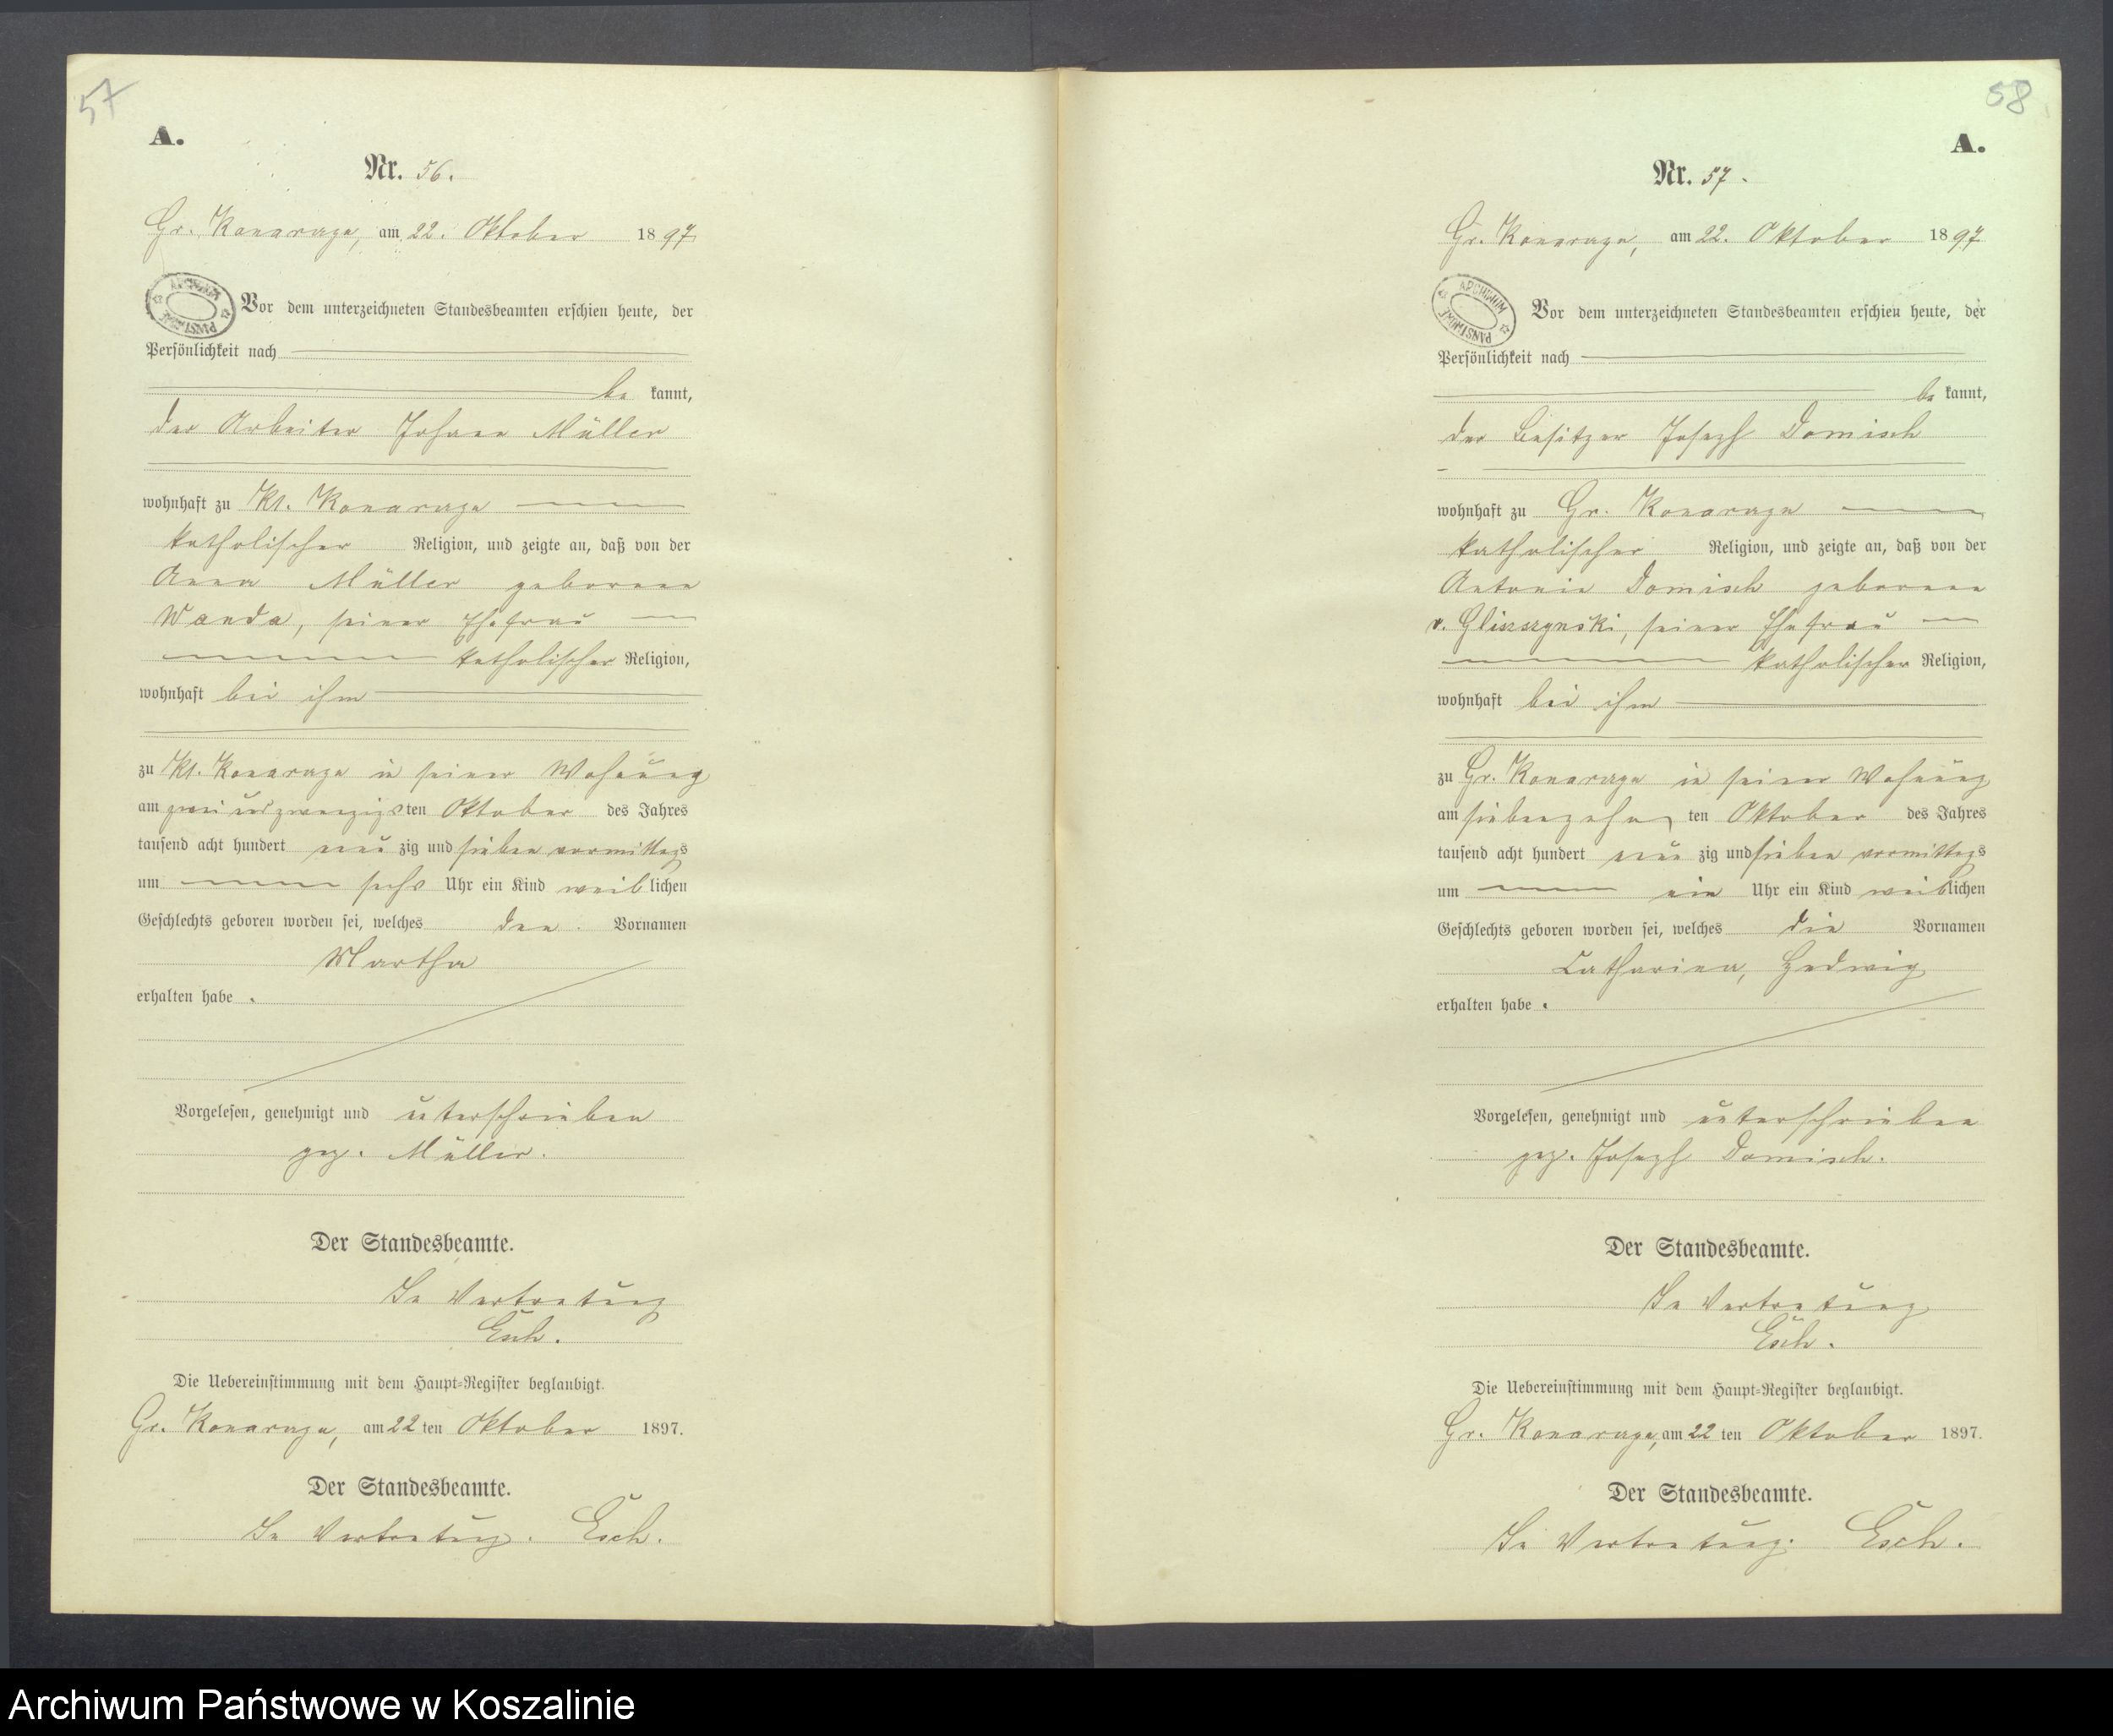 57
A.
Nr. 56.
Gr. Konarzyn, am 22. Oktober 1897
ARCHIWUM PAŃSTWOWE
Vor dem unterzeichneten Standesbeamten erschien heute, der
Persönlichkeit nach
be kannt,
der Arbeiter Johann Müller
wohnhaft zu Kl. Konarzyn
katholischer Religion, und zeigte an, daß von der
Anna Müller geborenen
Wanda, seiner Ehefrau
katholischer Religion,
wohnhaft bei ihm
zu Kl. Konarzyn in seiner Wohnung
am zwei und zwanzigsten Oktober des Jahres
tausend acht hundert neun zig und sieben vormittags
um sechs Uhr ein Kind weiblichen
Geschlechts geboren worden sei, welches den Vornamen
Martha
erhalten habe.
Vorgelesen, genehmigt und unterschrieben
gez. Müller.
Der Standesbeamte.
In Vertretung
Esch.
Die Uebereinstimmung mit dem Haupt-Register beglaubigt.
Gr. Konarzyn, am 22 ten Oktober 1897.
Der Standesbeamte.
In Vertretung. Esch.
58
A.
Nr. 57.
Gr. Konarzyn, am 22. Oktober 1897
ARCHIWUM PAŃSTWOWE
Vor dem unterzeichneten Standesbeamten erschien heute, der
Persönlichkeit nach
be kannt,
der Besitzer Joseph Domisch
wohnhaft zu Gr. Konarzyn
katholischer Religion, und zeigte an, daß von der
Antonie Domisch geborenen
v. Gliszszynski, seiner Ehefrau
katholischer Religion,
wohnhaft bei ihm
zu Gr. Konarzyn in seiner Wohnung
am siebenzehn ten Oktober des Jahres
tausend acht hundert neun zig und sieben vormittags
um ein Uhr ein Kind weiblichen
Geschlechts geboren worden sei, welches die Vornamen
Catharina, Hedwig
erhalten habe.
Vorgelesen, genehmigt und unterschrieben
gez. Joseph Domisch.
Der Standesbeamte.
In Vertretung
Esch.
Die Uebereinstimmung mit dem Haupt-Register beglaubigt.
Gr. Konarzyn, am 22 ten Oktober 1897.
Der Standesbeamte.
In Vertretung. Esch.
Archiwum Państwowe w Koszalinie